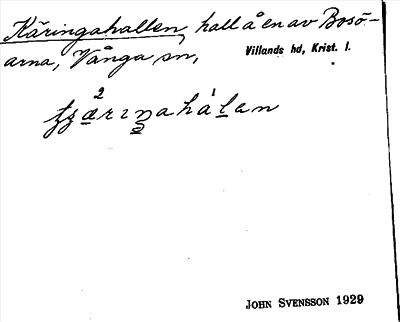 Käringahallen, hall å en av Bosö-
arna, Vånga sn, Villands hd, Krist. l.
2
JOHN SVENSSON 1929